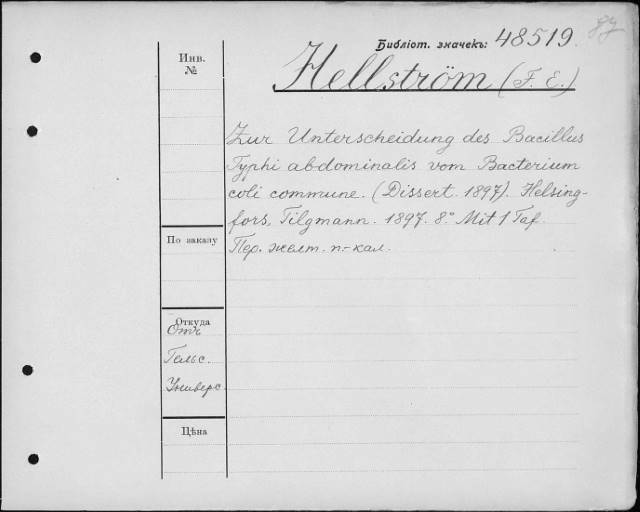 Библіот. значекъ: 48519.
Инв.
№
Hellström (F. E.)
Zur Unterscheidung des Bacillus
Typhi abdominalis vom Bacterium
coli commune. (Dissert. 1897). Helsing-
fors, Tilgmann. 1897. 8° Mit 1 Taf.
Пер. желт. п.-кал.
По заказу
Откуда
Отъ
Гельс.
Универс.
Цѣна